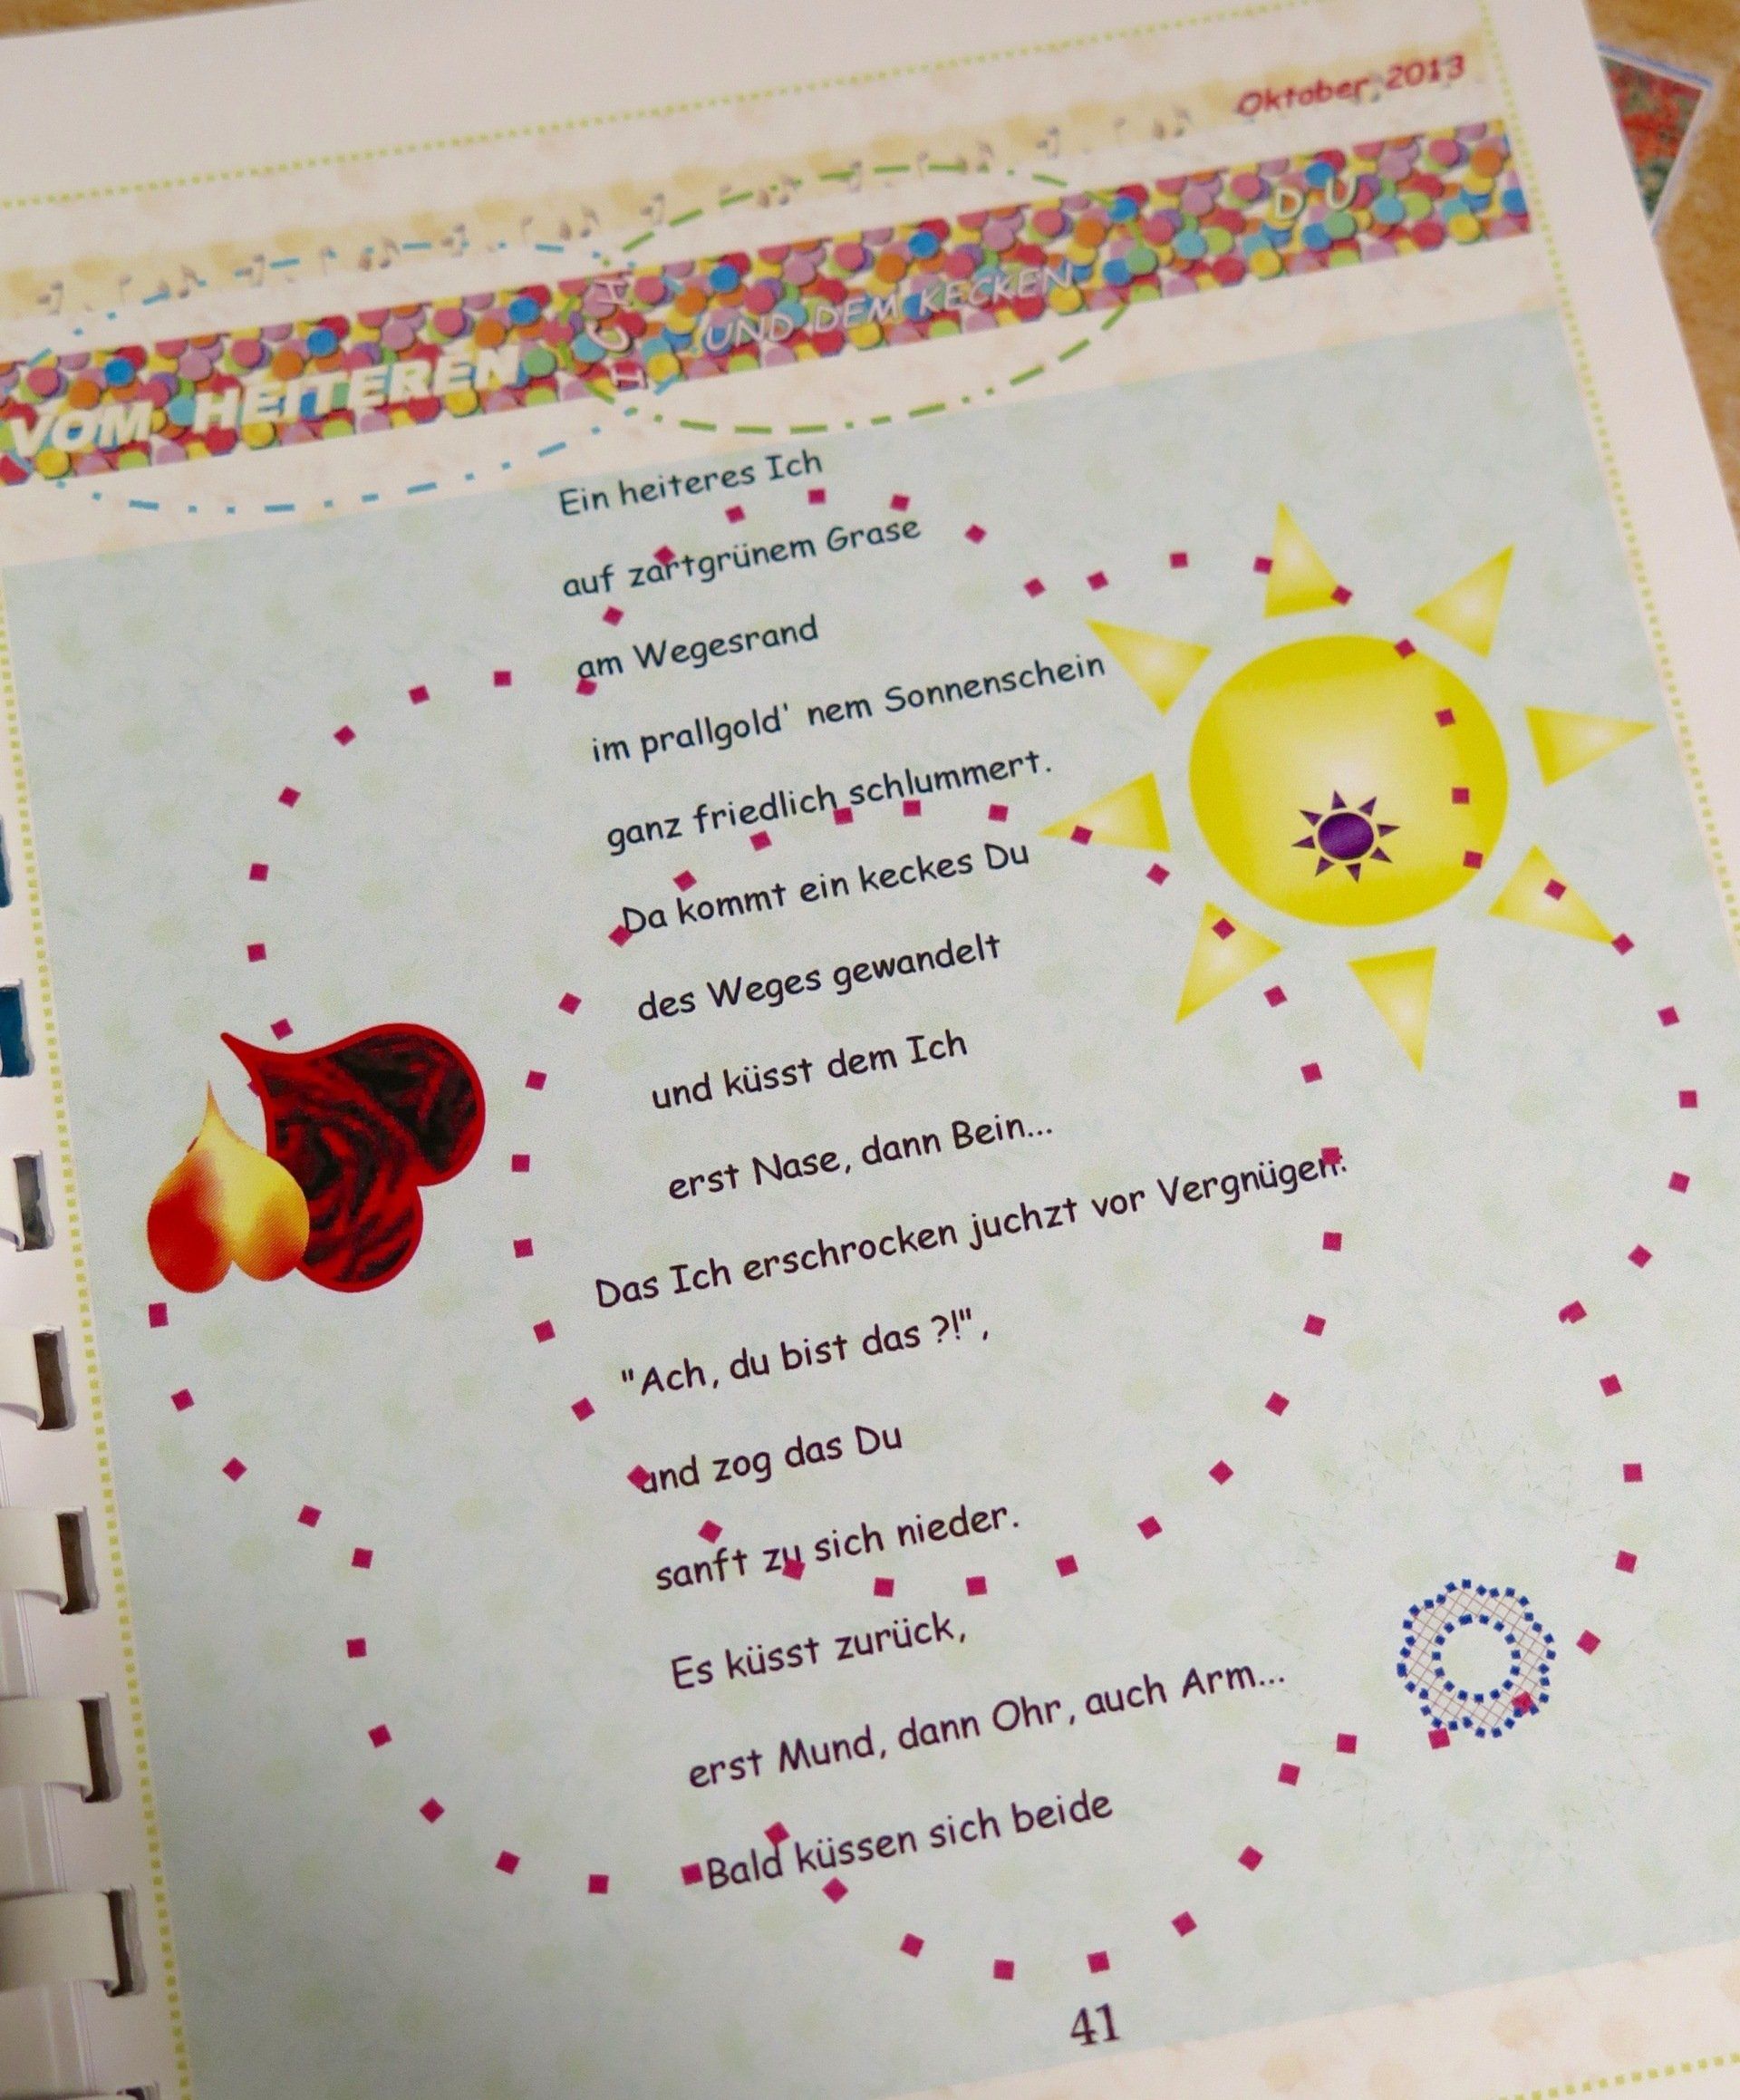 Oktober, 2013
VOM HEITEREN ICH UND DEM KECKEN DU
Ein heiteres Ich
auf zartgrünem Grase
am Wegesrand
im prallgold' nem Sonnenschein
ganz friedlich schlummert.
Da kommt ein keckes Du
des Weges gewandelt
und küsst dem Ich
erst Nase, dann Bein...
Das Ich erschrocken juchzt vor Vergnügen:
"Ach, du bist das ?!",
und zog das Du
sanft zu sich nieder.
Es küsst zurück,
erst Mund, dann Ohr, auch Arm...
Bald küssen sich beide
41